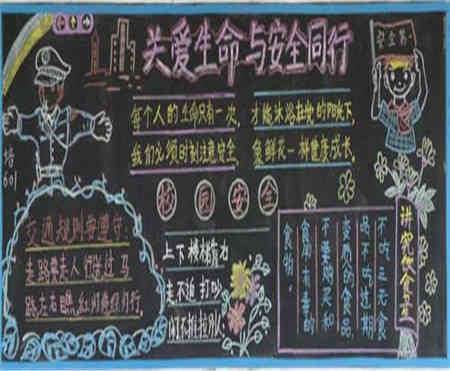 关爱生命与安全同行
安全第一
每个人的生命只有一次,
才能沐浴在灿烂的阳光下,
我们必须时刻注意安全,
像鲜花一样健康成长。
培
601
校园安全
交通规则要遵守
走路要走人行
路左右瞧,红灯
上下楼梯靠右
走不追打
不吃三无食
品不吃过期
变质的食品,
不要购买和
食用有毒的
食物。
讲究饮食